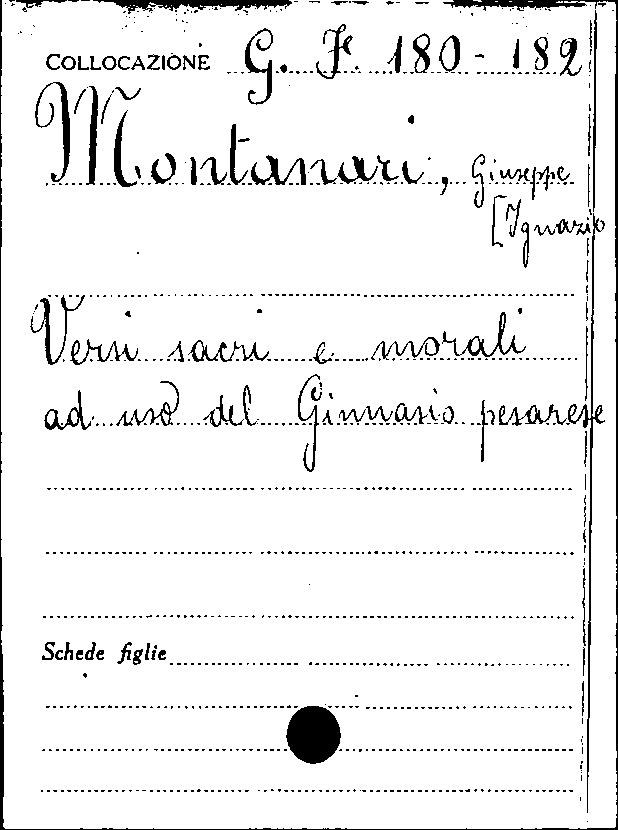 COLLOCAZIONE G. F. 180 - 182
Montanari, Giuseppe
[Ignazio
Versi sacri e morali
ad uso del Ginnasio pesarese
Schede figlie